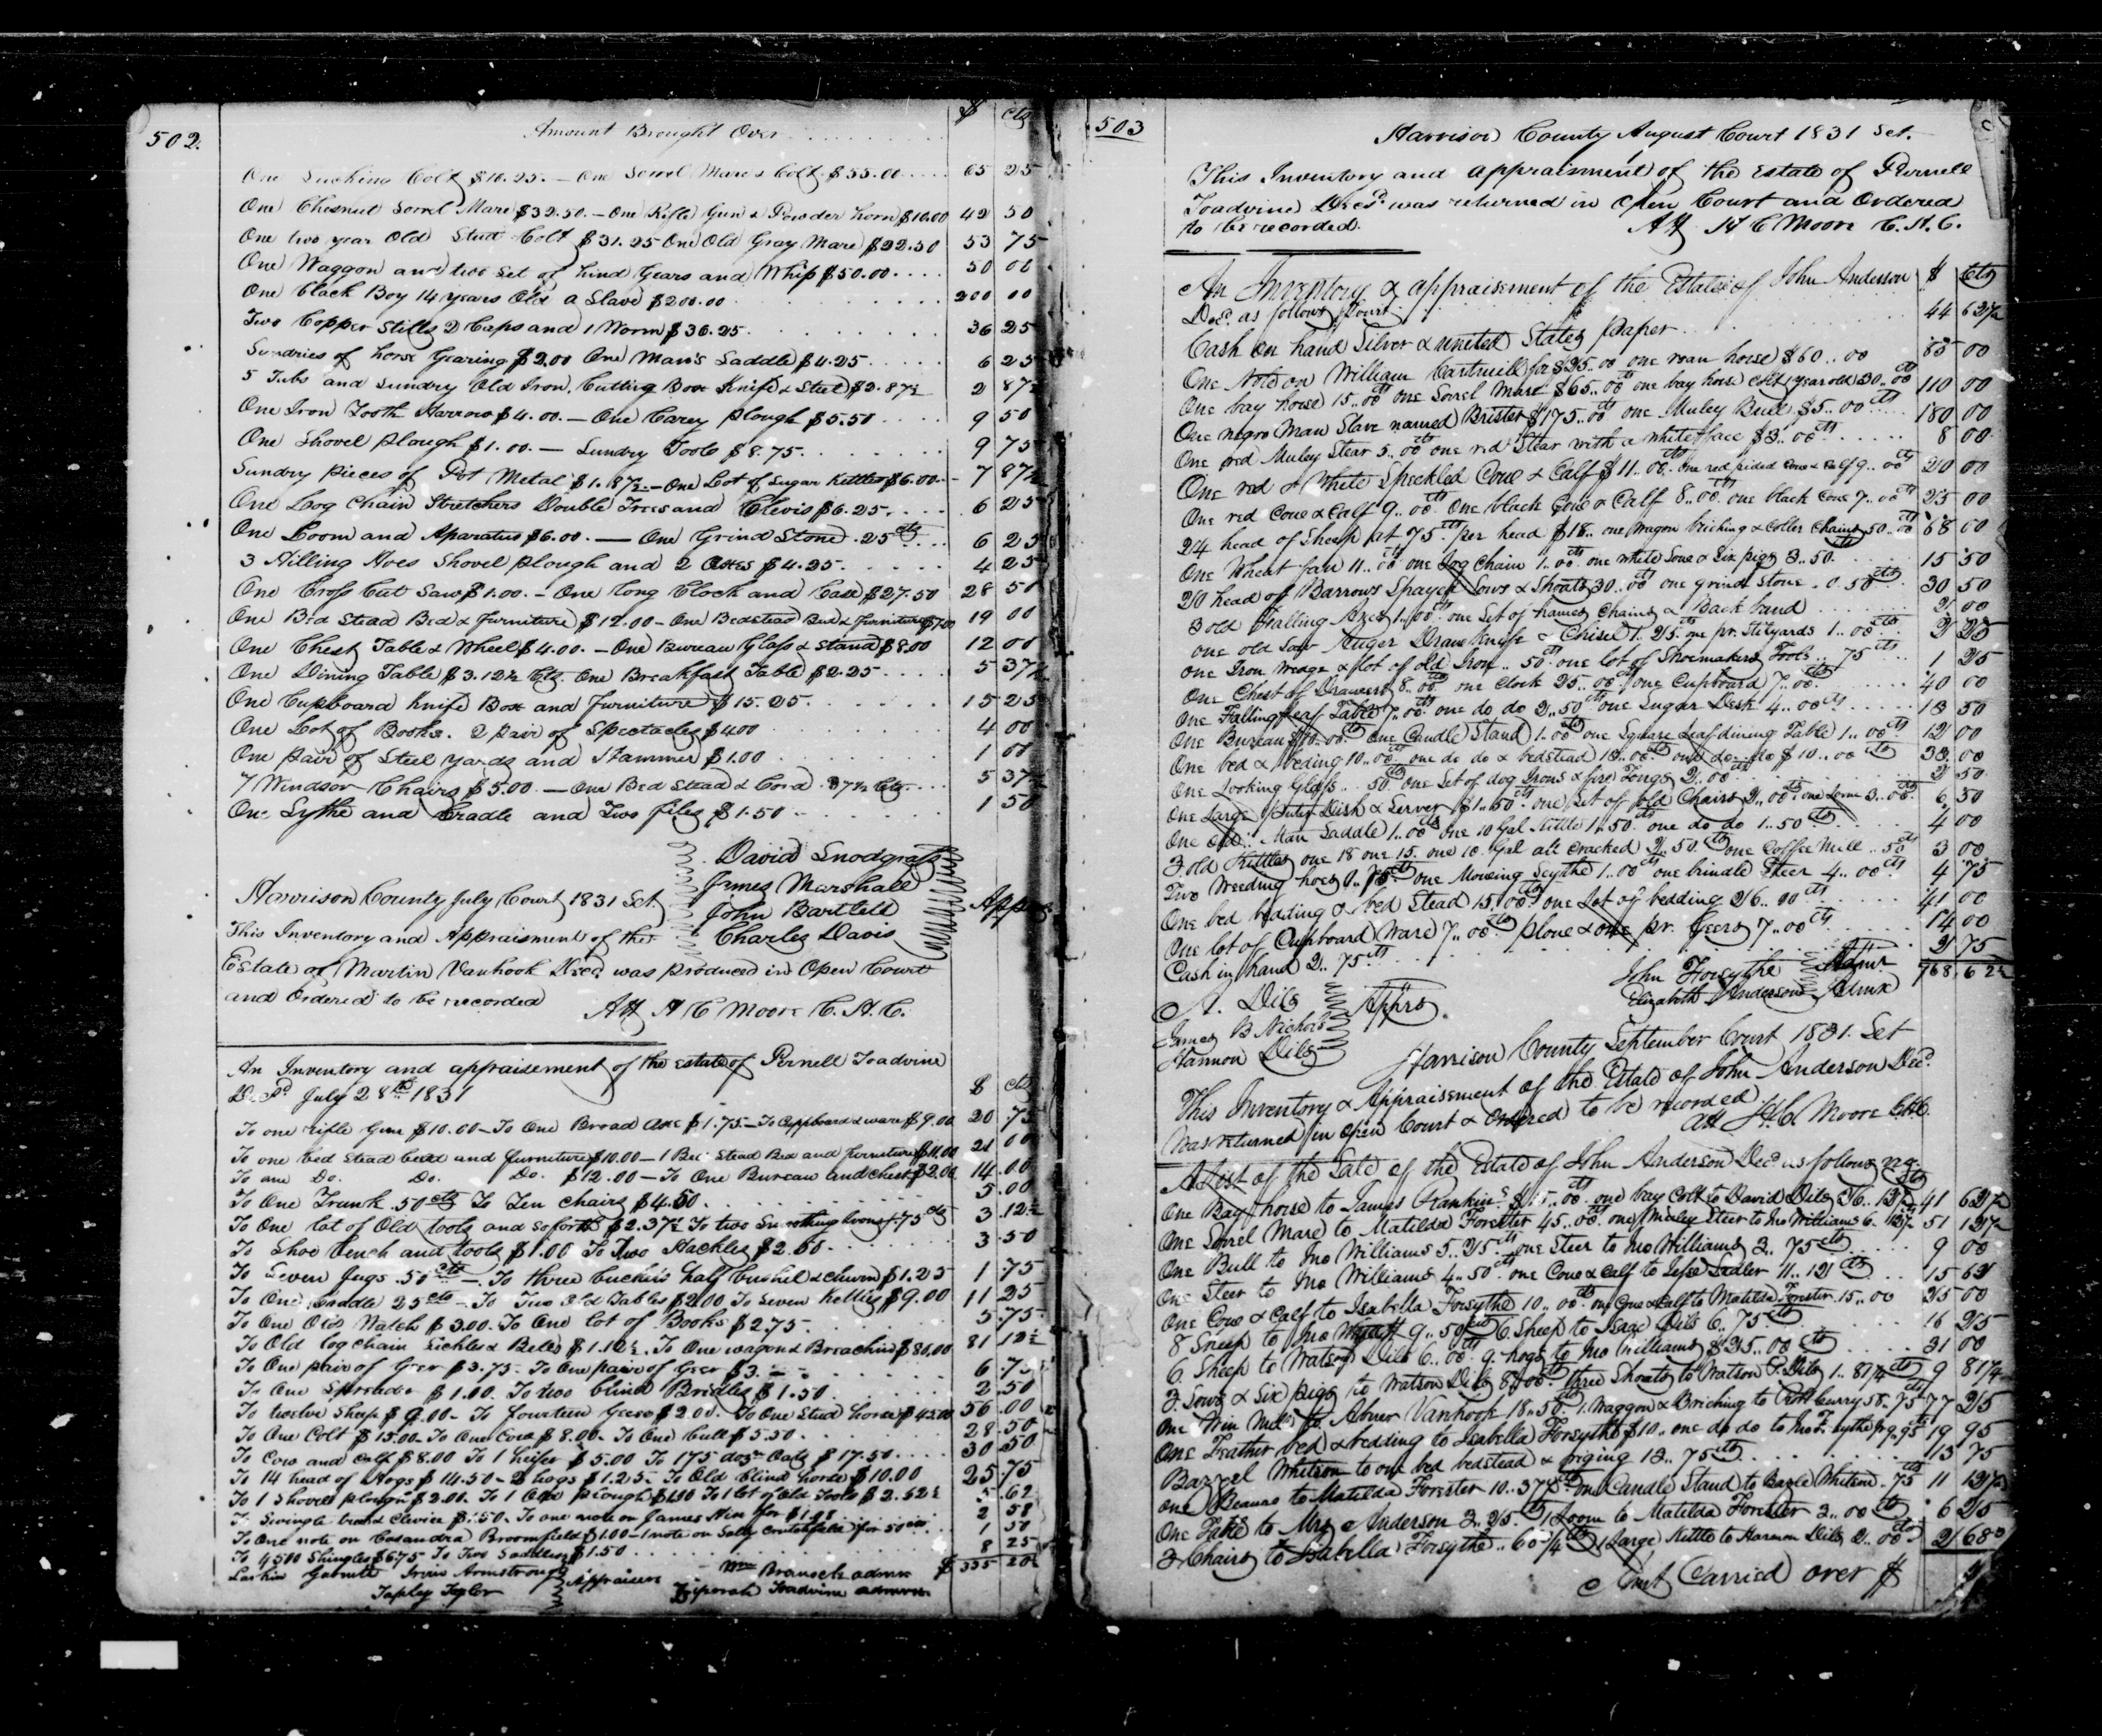 502.
Amount Brought Over
$ cts
One Sucking Colt $10.25. — One Sorrel Mare & Colt $55.00 65 25
One Chesnut Sorrel Mare $32.50. — One Rifle Gun & Powder horn $10.00 42 50
One two year Old Stud Colt $31.25 One Old Gray Mare $22.50 53 75
One Waggon and two Set of hind Gears and Whip $50.00 50 00
One black Boy 14 years Old a Slave $200.00 200 00
Two Copper Stills 2 Caps and 1 Worm $36.25 36 25
Sundries of horse Gearing $2.00 One Man's Saddle $4.25 6 25
5 Tubs and Sundry Old Iron, Cutting Box Knife & Steel $2.87½ 2 87½
One Iron Tooth Harrow $4.00. — One Carey Plough $5.50 9 50
One Shovel Plough $1.00. — Sundry Tools $8.75. 9 75
Sundry pieces of Pot Metal $1.87½ — One Lot of Sugar Kettles $6.00 7 87½
One Log Chain Stretchers Double Trees and Clevis $6.25 6 25
One Loom and Aparatus $6.00. — One Grind Stone .25 cts 6 25
3 Hilling Hoes Shovel plough and 2 Axes $4.25 4 25
One Cross Cut Saw $1.00. — One long Clock and Case $27.50 28 50
One Bed Stead Bed & Furniture $12.00 — One Bedstead Bed & furniture $7.00 19 00
One Chest Table & Wheel $4.00. — One Bureau Glass & Stand $8.00 12 00
One Dining Table $3.12½ Cts. One Breakfast Table $2.25 5 37½
One Cupboard Knife Box and Furniture $15.25. 15 25
One Lot of Books. 2 pair of Spectacles $4.00 4 00
One pair of Steel yards and 1 Hammer $1.00 1 00
7 Windsor Chairs $5.00. — One Bed Stead & Cord .37½ Cts 5 37½
One Sythe and Cradle and Two files $1.50 1 50
David Snodgrass
James Marshall
John Bartlett
Charles Davis
Apprs
Harrison County July Court 1831 Sct.
This Inventory and Appraisment of the
Estate of Martin Vanhook Decd was produced in Open Court
and Ordered to be recorded
Att H C Moore C. H. C.
An Inventory and appraisement of the estate of Pernell Toadvine
Decd. July 28th 1831 $ cts
To one rifle Gun $10.00 — To One Broad axe $1.75 — To Cupboard & ware $9.00 20 75
To one bed Stead bed and furniture $10.00 — 1 Bed Stead Bed and furniture $11.00 21 00
To one Do. Do. Do. $12.00 — To One Bureau and chest $2.00 14.00
To One Trunk .50 cts To Ten Chairs $4.50 5.00
To One lot of Old tools and so forth $2.37½ To two Smoothing Irons .75 cts 3.12½
To Shoe bench and tools $1.00 To Two Hackles $2.50 3.50
To Seven Jugs .50 cts — To three buckets half bushel & churn $1.25 1.75
To One Saddle 25 cts — To Two Old Tables $2.00 To Seven Kettles $9.00 11 25
To One Old Watch $3.00. To One lot of Books $2.75 5.75
To Old log chain Sickles & Bells $1.12½. To One wagon & Breaching $80.00 81 12½
To One pair of Gear $3.75 — To One pair of Gear $3. 6.75
To One Spreader $1.00. To two blind Bridles $1.50 2.50
To twelve Sheep $9.00 — To fourteen Geese $2.00. To One Stud horse $45.00 56.00
To One Colt $15.00 — To One Cow $8.00 — To One bull $5.50 28.50
To Cow and Calf $8.00 To 1 heifer $5.00 To 175 doz Oats $17.50 30.50
To 14 head of Hogs $14.50 — 2 hogs $1.25 — To Old blind horse $10.00 25.75
To 1 Shovel plough $2.00. To 1 Old plough $1.00 To 1 lot of Old Tools $2.62½ 5.62
To Swingle tree & Clevice $1.50. To one note on James for 2 58
To One note on Casandra Broomfield $1.00 — 1 note on Sally for 50 cts 1 50
To 4500 Shingles $6.75 To Two Saddles $1.50 8 25
Larkin Garnett Irvin Armstrong
Tapley Tyler
Appraisers
Wm Branch admr
Ziporah Toadvine admrx
$ 335 20½
503
Harrison County August Court 1831 Sct.
This Inventory and appraisment of the Estate of Purnell
Toadvine Decd. was returned in Open Court and Ordered
to be recorded.
Att H C Moore C. H. C.
An Inventory & appraisement of the Estate of John Anderson $ Cts
Decd. as follows
Cash on hand Silver & united States paper 44 62½
One Note on William Cantrill for $25.00 one roan horse $60..00 85 00
One bay horse 15..00 cts one Sorrel Mare $65..00 cts one bay horse Colt 1 year old 30..00 cts 110 00
One negro Man Slave named Brister $175..00 cts one Muley Bull $5..00 cts 180 00
One red Muley Stear 5..00 cts one red Stear with a white face $3..00 cts 8 00
One red & White Speckled Cow & Calf $11..00 cts one red pided Cow & Calf 9..00 cts 20 00
One red Cow & Calf 9..00 cts One black Cow & Calf 8..00 cts one black Cow 7..00 cts 25 00
24 head of Sheep at 75 cts per head $18.. one Wagon briching & Coller Chains 50..00 cts 68 00
One Wheat fan 11..00 cts one Log Chain 1..00 cts one white Sow & Six pigs 3..50 15 50
20 head of Barrows Spayed Sows & Shoats 30..00 cts one grind Stone .0.50 cts 30 50
3 old Falling Axes 1..00 cts one Set of hames Chains & Back band 2 00
one old Saw Auger Draw Knife & Chisel 1..25 cts one pr. Stilyards 1..00 cts 2 25
one Iron Wedge & lot of old Iron .. 50 cts one lot of Shoemakers Tools .. 75 cts 1 25
One Chest of Drawers 8..00 cts one Clock 25..00 cts one Cupboard 7..00 cts 40 00
One Falling leaf Table 7..00 cts one do do 2..50 cts one Sugar Desk 4..00 cts 13 50
One Bureau $10..00 cts One Candle Stand 1..00 cts one Square Leaf dining Table 1..00 cts 12 00
One bed & beding 10..00 cts one do do & bedstead 13..00 cts one do do $10..00 cts 33 00
One Looking Glass .. 50 cts one Set of dog Irons & fire Tongs 2..00 cts 2 50
One Large Puter Dish & Server $1..50 cts one Set of old Chairs 2..00 cts one Loom 3..00 cts 6 50
One old Man Saddle 1..00 cts One 10 Gal Kettle 1..50 cts one do do 1..50 cts 4 00
3 old Kettles one 18 one 15. one 10. Gal all cracked 2..50 cts one Coffee Mill .. 50 cts 3 00
Two Weeding hoes cts one Mowing Scythe 1..00 cts one brindle Steer 4..00 cts 4 75
One bed bedding & bed Stead 15..00 cts one Lot of bedding 26..00 cts 41 00
One lot of Cupboard Ware 7..00 cts plow & one pr. Geers 7..00 cts 14 00
Cash in hand 2..75 cts 2 75
768.62½
John Forsythe Admr
Elizabeth Anderson Admrx
A. Dils
James B Nichols
Harmon Dils
Apprs.
Harrison County September Court 1831. Sct
This Inventory & Appraisement of the Estate of John Anderson Decd.
Was returned in Open Court & Ordered to be recorded
att H. C. Moore C.H.C.
A List of the Sale of the Estate of John Anderson Decd as follows
One Bay horse to James Rankins .00 cts one bay Colt to David Dils 41 62½
One Sorrel Mare to Matilda Forester 45..00 cts one Muley Steer to Jno Williams 6..12½ 51 12½
One Bull to Jno Williams 5..25 cts one Steer to Jno Williams 3..75 cts 9 00
One Steer to Jno Williams 4..50 cts one Cow & Calf to Jesse Sadler 11..12 cts 15 62
One Cow & Calf to Isabella Forsythe 10..00 cts one Cow & Calf to Matilda Forester 15..00 25 00
8 Sheep to Jno 9..50 cts 6 Sheep to Isaac Dils 6..75 cts 16 25
6. Sheep to Watson Dils 6..00 cts 9. hogs to Jno Williams $25..00 cts 31 00
3 Sows & Six pigs to Watson Dils 8..00 cts three Shoats to Watson P. Dils 1..81¼ cts 9 81¼
One Win Mill to Abner Vanhook 18..50 cts 1 Waggon & Briching to Curry 58..75 cts 77 25
One Feather bed & bedding to Isabella Forsythe $10.. one do do to Jno Forsythe for 9..95 cts 19 95
Bazzel Whitson to one bed bedstead & 13..75 cts 13 75
One Beaurо to Matilda Forester 10.37½ cts one Candle Stand to Bazle Whitson .75 cts 11 12½
One Table to Mrs Anderson 3..25 cts 1 Loom to Matilda Forester 3..00 cts 6 25
3 Chairs to Isabella Forsythe .. 68¾ cts 1 Large Kettle to Harmon Dils 2..00 cts 2 68¾
Amt Carried over $